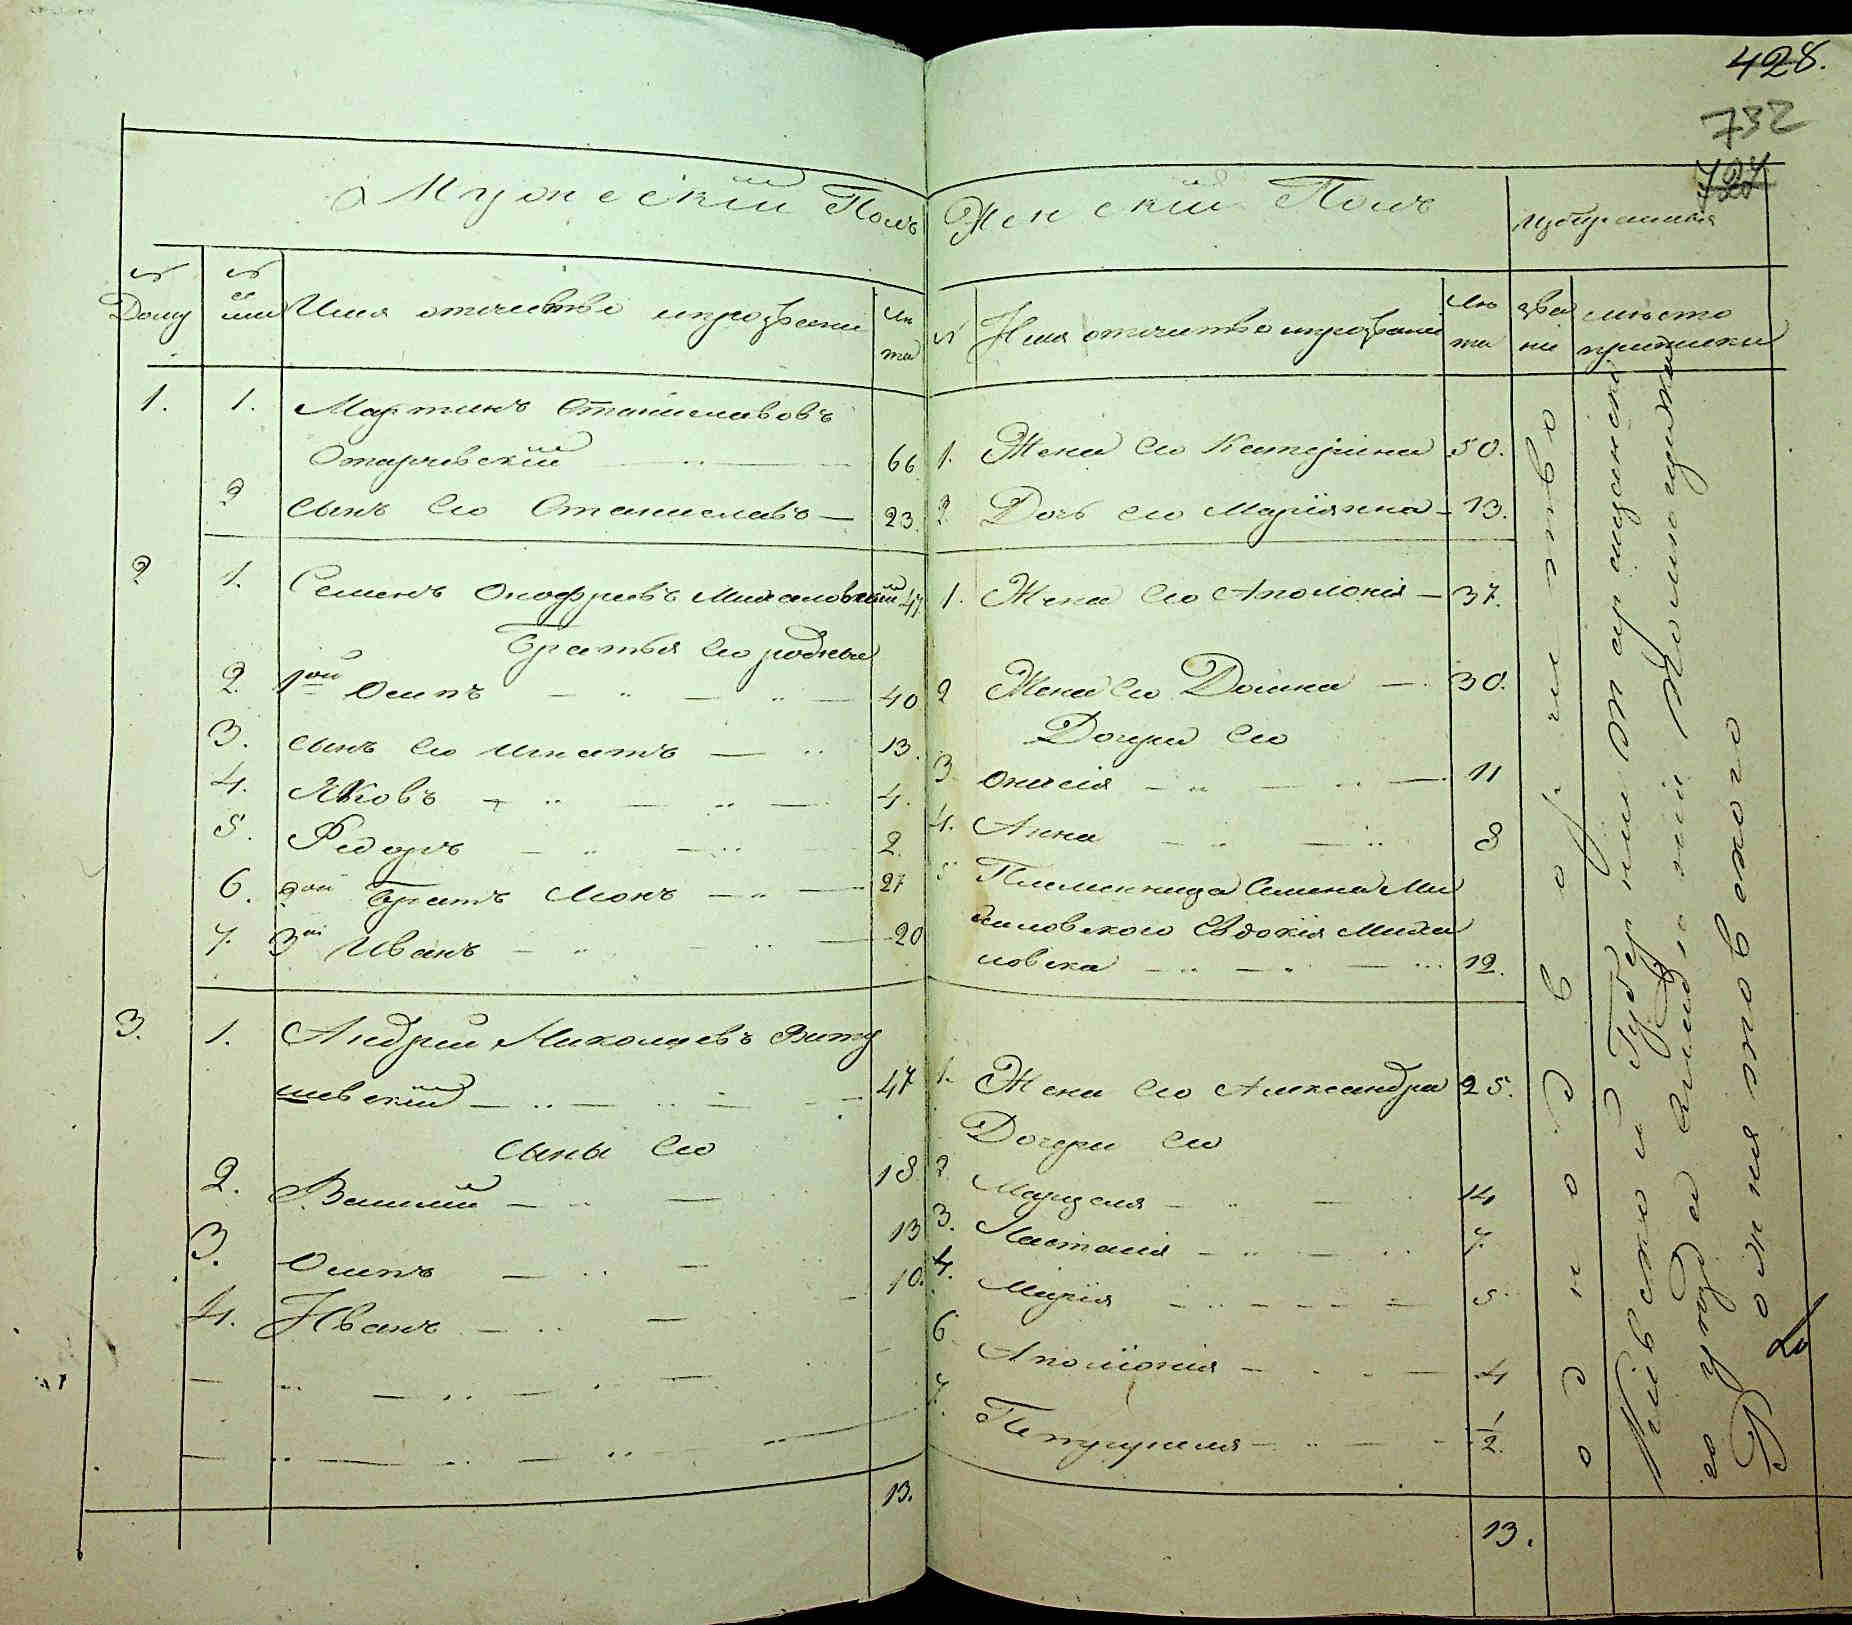 428.
732
727
Мужескій Полъ
№ Дому
№
Имя отечество ипрозвани
лета
1. 1. Мартинъ Станиславовъ
Отаревскій 66
2 сынъ Его Станиславъ — 23.
2 1. Семенъ Онофріевъ Михаловскій 47
Братья Его родные
2. 1ой Осипъ — 40
3. сынъ Его Игнатъ — 13.
4. Яковъ — 4.
5. Федоръ — 2.
6. 2ой Братъ Леонъ — 27
7. 3ій Иванъ — 20
3. 1. Андрей Николаевъ Виту
шевскій — 47
сыны Его
2. Василій — 18
3. Осипъ — 13
4. Иванъ — 10.
13.
Женскій Полъ
№
Имя отечество ипрозвани
лета
звание
место
приписки
1. Жена Его Катерина 50.
2. Дочь Его Маріянна — 13.
1. Жена Его Аполонія — 37.
2 Жена Его Домна — 30.
Дочери Его
3 Онисія — 11
4. Анна — 8
5 Племенница Семена Ми
халовского Евдокія Миха
ловска — 12.
1. Жена Его Александра 25.
Дочери Его
2 Марцеля — 14
3. Настасія — 7.
4. Марія — 5.
6 Аполіонія — 4
7. Петрунеля — 1/2
13.
однодворчество
Кіевской Губерніи Таращанска
го уезда